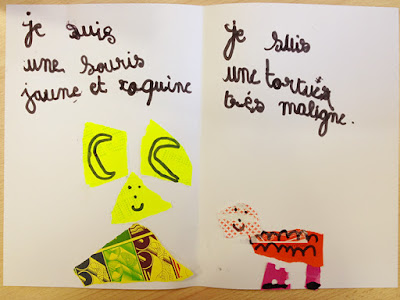 je suis
une souris
jaune et coquine
je suis
une tortue
très maligne.